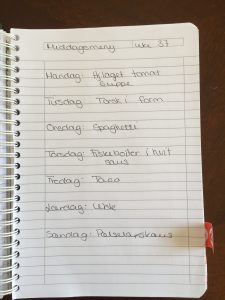 Middagsmeny uke 37
Mandag: Hjlaget tomat
suppe
Tirsdag: Torsk i form
Onsdag: Spaghetti
Torsdag: Fiskeboller i hvit
saus
Fredag: Taco
Lørdag: Wok
Søndag: Pølselapskaus